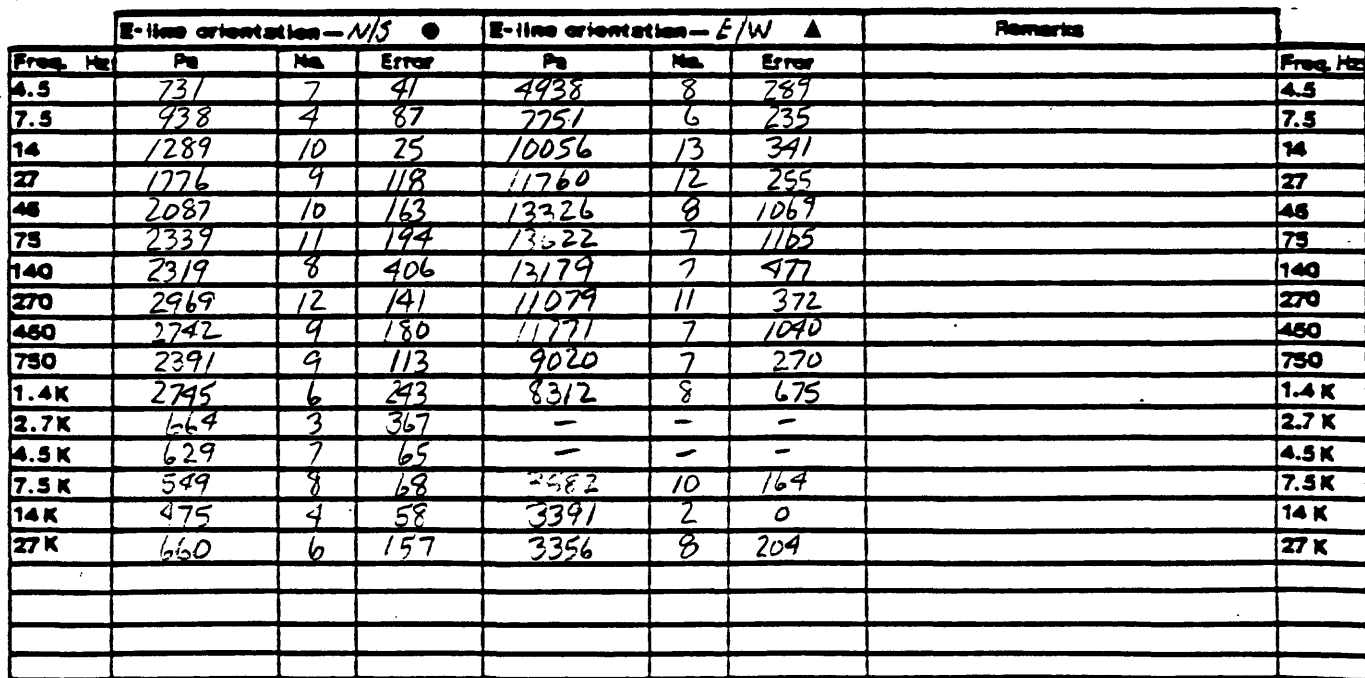 E-line orientation— N/S ● E-line orientation— E/W ▲ Remarks
Freq. Hz Pa No. Error Pa No. Error Freq. Hz
4.5 731 7 41 4938 8 289 4.5
7.5 938 4 87 7751 6 235 7.5
14 1289 10 25 10056 13 341 14
27 1776 9 118 11760 12 255 27
45 2087 10 163 13326 8 1069 45
75 2339 11 194 13622 7 1165 75
140 2319 8 406 13179 7 477 140
270 2969 12 141 11079 11 372 270
450 2742 9 180 11771 7 1040 450
750 2391 9 113 9020 7 270 750
1.4K 2745 6 243 8312 8 675 1.4K
2.7K 664 3 367 — — — 2.7K
4.5K 629 7 65 — — — 4.5K
7.5K 549 8 68 10 164 7.5K
14K 475 4 58 3391 2 0 14K
27K 660 6 157 3356 8 204 27K